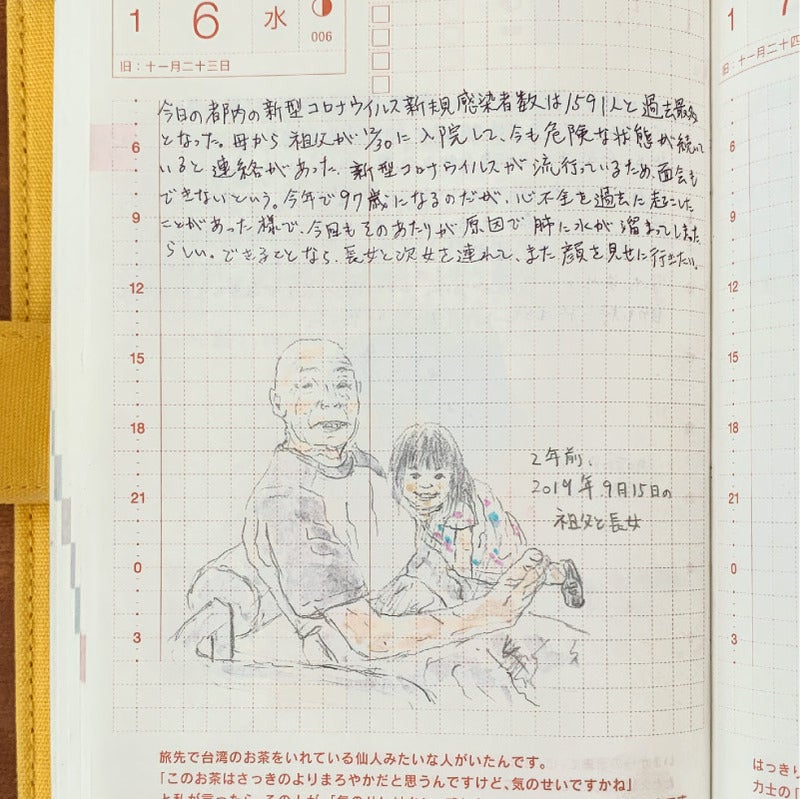 1 6 水
006
旧：十一月二十三日
今日の都内の新型コロナウイルス新規感染者数は1591人と過去最多
となった。母から祖父が12/30に入院して、今も危険な状態が続いて
いると連絡があった。新型コロナウイルスが流行っているため、面会も
できないという。今年で97歳になるのだが、心不全を過去に起こした
ことがあった様で、今回もそのあたりが原因で肺に水が溜まってしまった
らしい。できることなら、長女と次女を連れて、また顔を見せに行きたい。
6
9
12
15
18
21
0
3
2年前、
2019年9月15日の
祖父と長女
旅先で台湾のお茶をいれている仙人みたいな人がいたんです。
「このお茶はさっきのよりまろやかだと思うんですけど、気のせいですかね」
と私が言ったら、その人が、「気のせい
1
旧：十一月二十四
6
9
12
15
18
21
0
3
はっきり
力士の「